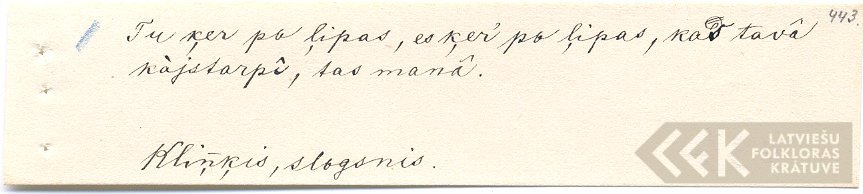 443.
Tu ķer pa ļipas, es ķer' pa ļipas, kas tavâ
kàjstarpî, tas manâ.
Kliņķis, slogsnis.
LATVIEŠU
FOLKLORAS
KRĀTUVE